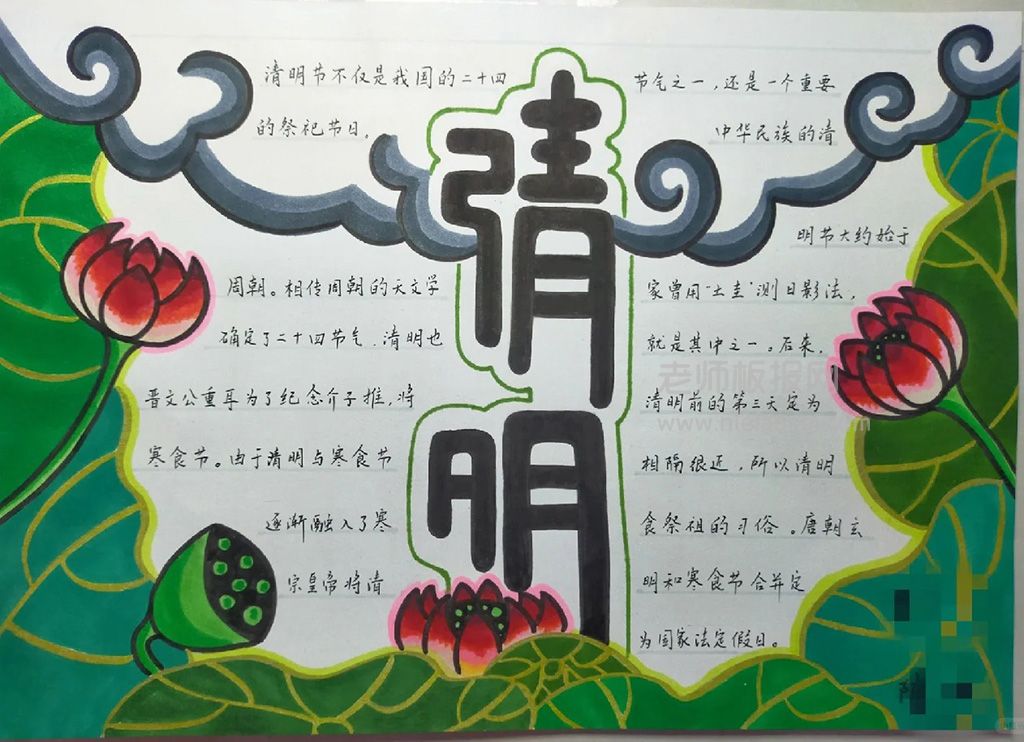 清明
清明节不仅是我国的二十四 节气之一，还是一个重要
的祭祀节日。 中华民族的清
明节大约始于
周朝。相传周朝的天文学 家曾用“土圭”测日影法，
确定了二十四节气，清明也 就是其中之一。后来，
晋文公重耳为了纪念介子推，将 清明前的第三天定为
寒食节。由于清明与寒食节 相隔很近，所以清明
逐渐融入了寒 食祭祖的习俗。唐朝玄
宗皇帝将清 明和寒食节合并定
为国家法定假日。
老师板报网